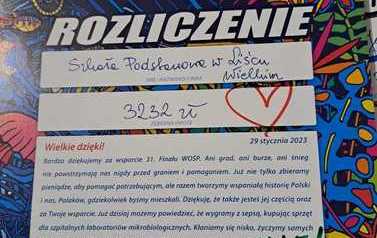 ROZLICZENIE
Szkoła Podstawowa w Liścu
Wielkim
IMIĘ I NAZWISKO / FIRMA
3232 zł
ZEBRANA KWOTA
Wielkie dzięki!
29 stycznia 2023
Bardzo dziękujemy za wsparcie 31. Finału WOŚP. Ani grad, ani burze, ani śnieg
nie powstrzymają nas nigdy przed graniem i pomaganiem. Już nie tylko zbieramy
pieniądze, aby pomagać potrzebującym, ale razem tworzymy wspaniałą historię Polski
i nas, Polaków, gdziekolwiek byśmy mieszkali. Dziękuję, że także jesteś jej częścią oraz
za Twoje wsparcie. Już dzisiaj możemy powiedzieć, że wygramy z sepsą, kupując sprzęt
dla szpitalnych laboratoriów mikrobiologicznych. Kłaniamy się nisko, życzymy samych